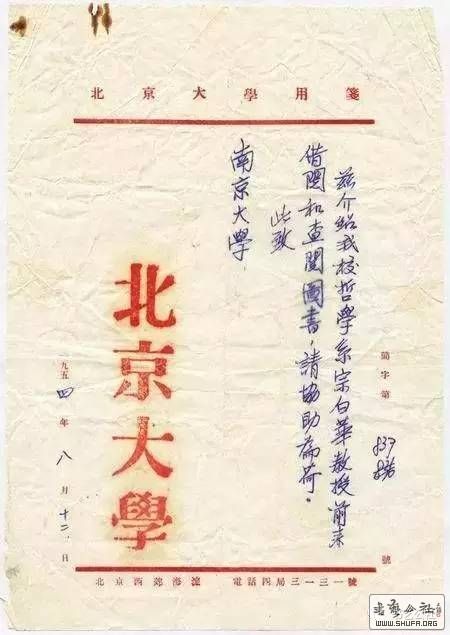 北京大學用箋
簡字第 837 號
茲介紹我校哲學系宗白華教授前來
借閱和查閱圖書，請協助為荷。
此致
南京大學
北京大學
一九五四年八月十二日
北京西郊海淀 電話四局三一三一號
書藝公社
WWW.SHUFA.ORG